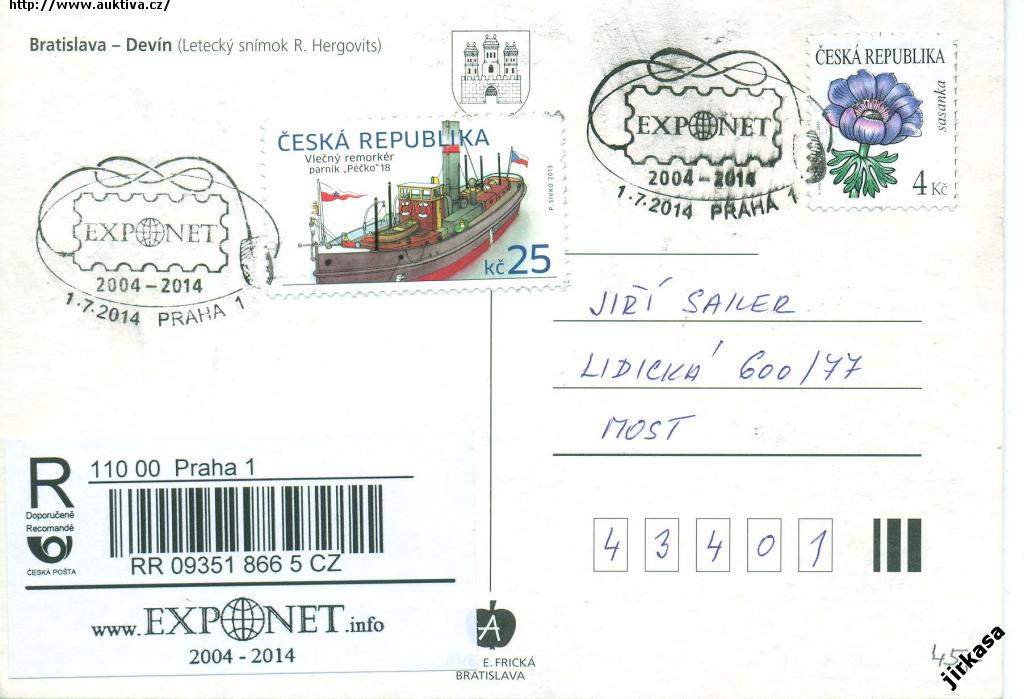 http://www.auktiva.cz/
Bratislava – Devín (Letecký snímok R. Hergovits)
EXPONET
2004 – 2014
1.7.2014 PRAHA 1
ČESKÁ REPUBLIKA
Vlečný remorkér
parník „Péčko" 18
P. SIVKO 2013
Kč 25
EXPONET
2004 – 2014
1.7.2014 PRAHA 1
ČESKÁ REPUBLIKA
sasanka
4 Kč
JIŘÍ SAILER
LIDICKÁ 600/77
MOST
43401
R
Doporučeně
Recomandé
ČESKÁ POŠTA
110 00 Praha 1
RR 09351 866 5 CZ
www.EXPONET.info
2004 - 2014
A
E. FRICKÁ
BRATISLAVA
45
jirkasa